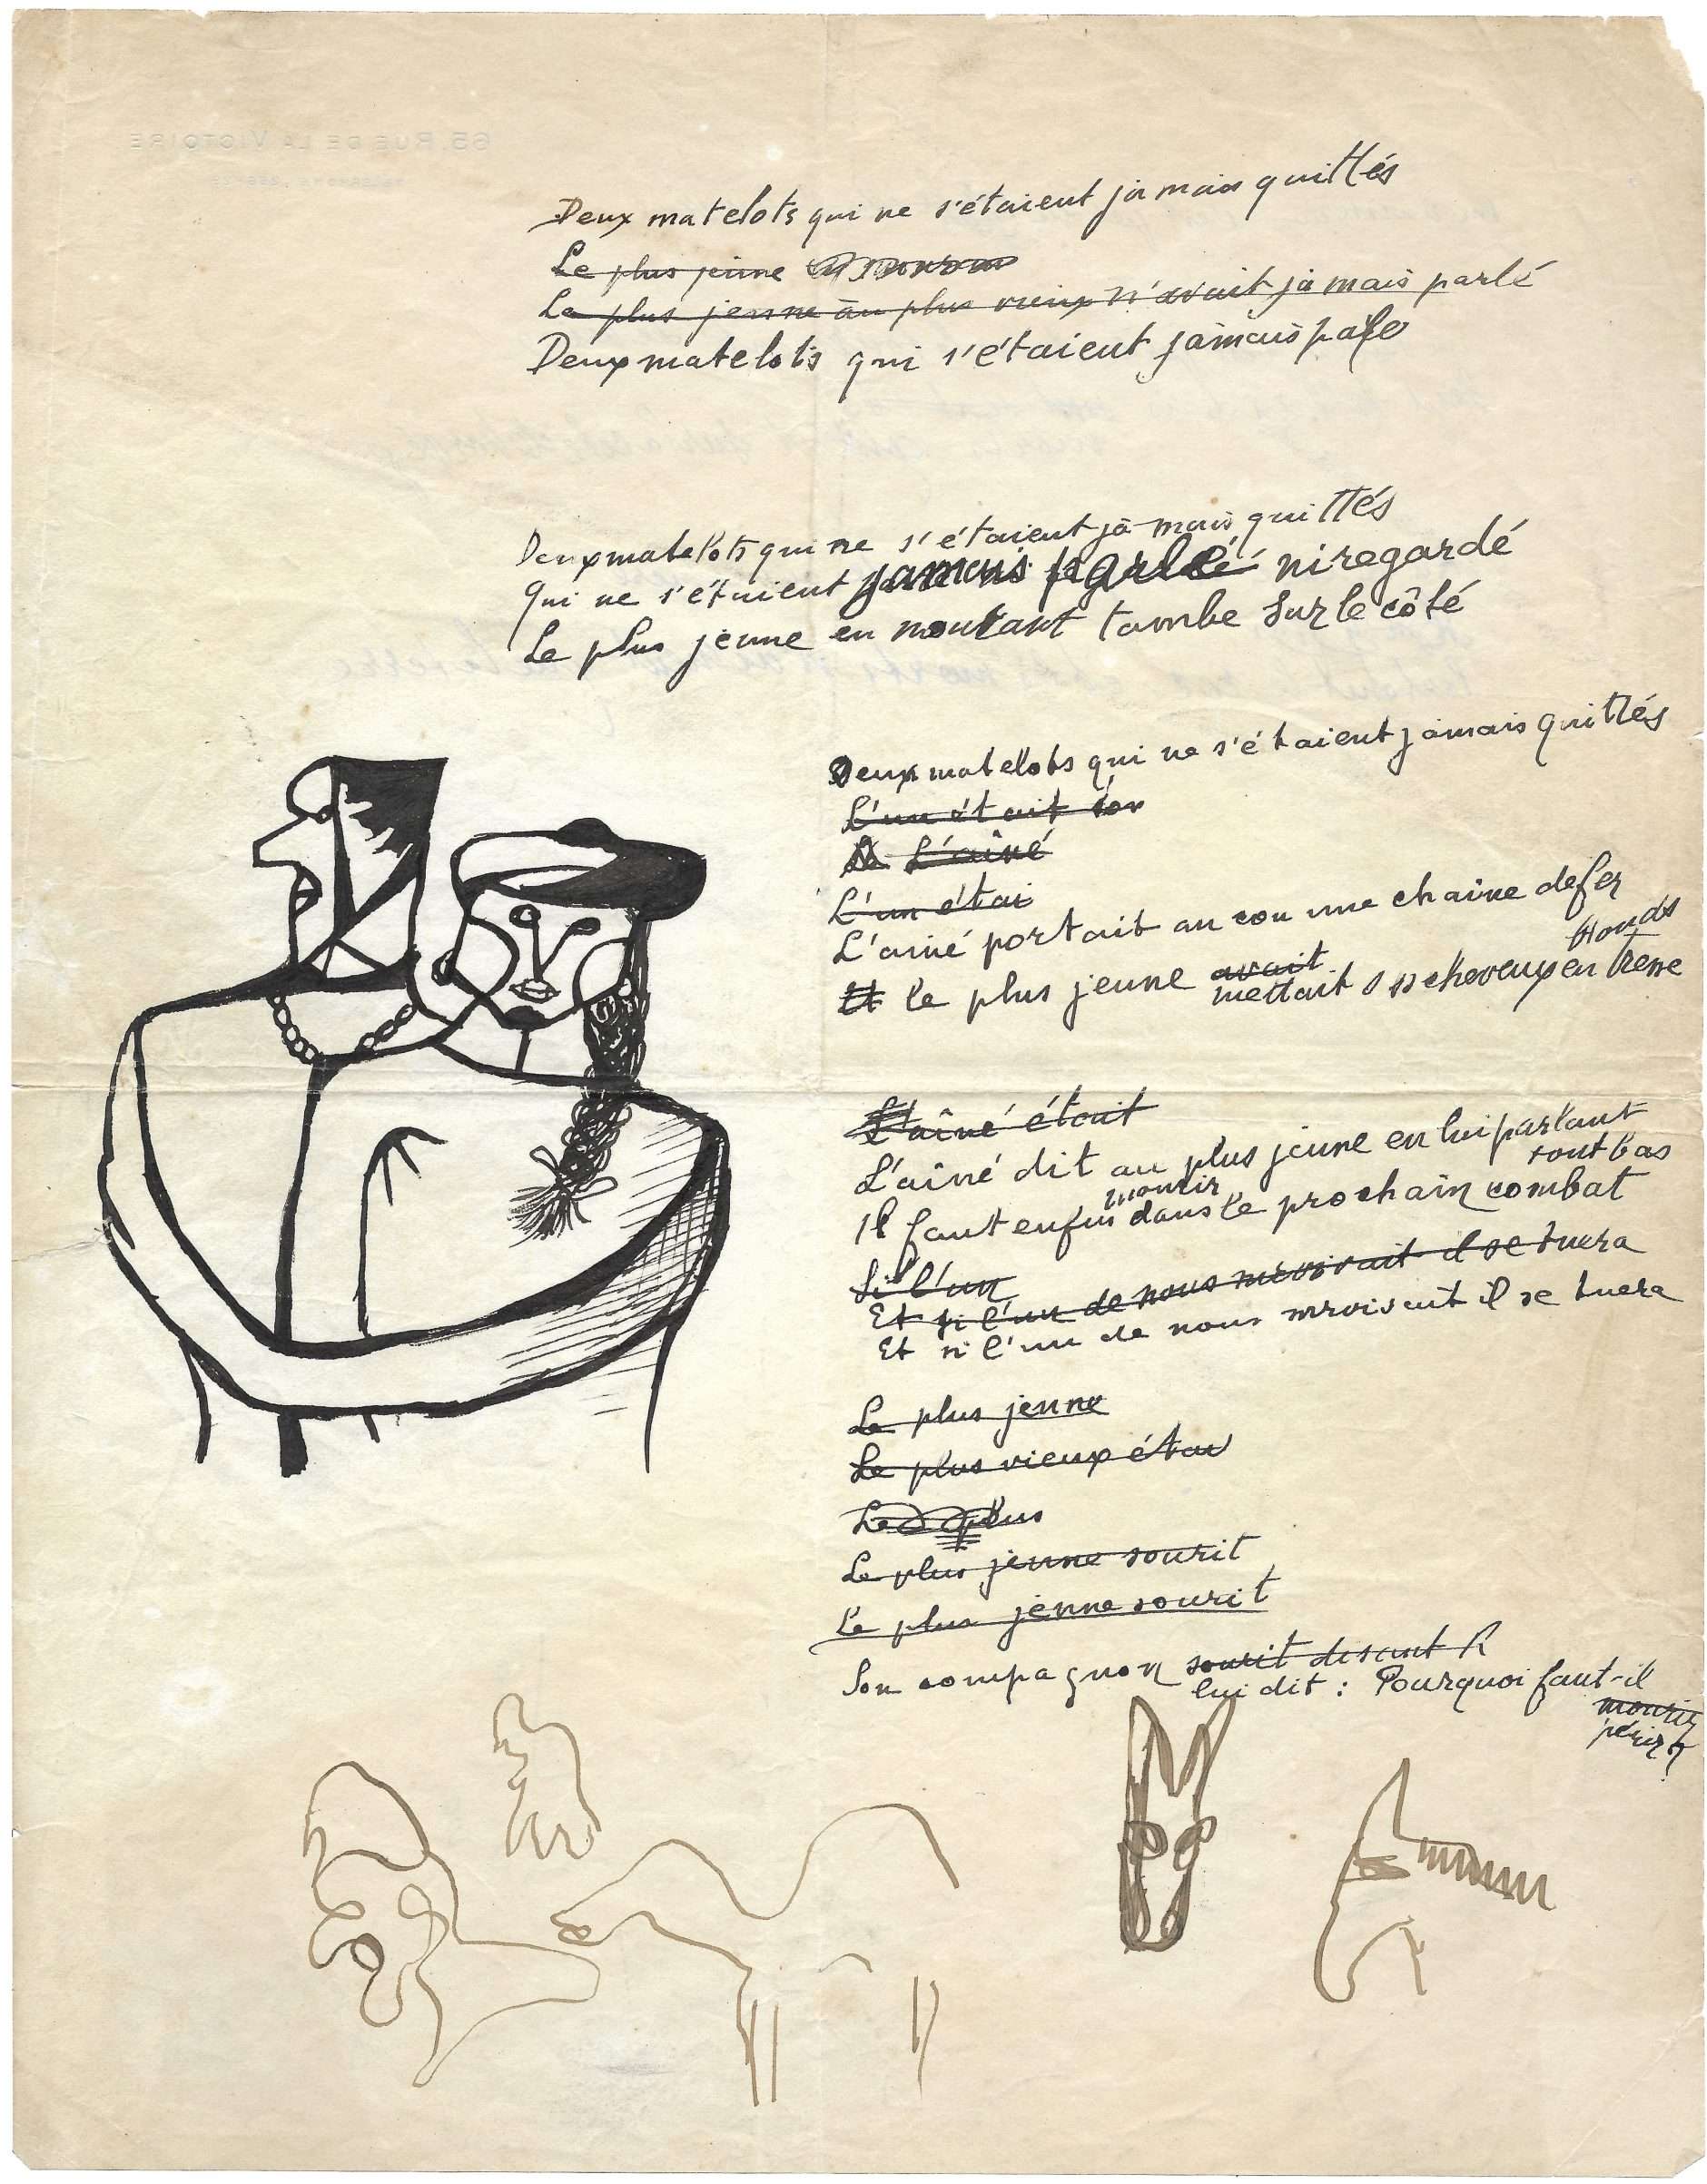 65, RUE DE LA VICTOIRE
Deux matelots qui ne s'étaient jamais quittés
Le plus jeune
Le plus jeune au plus vieux n'avait jamais parlé
Deux matelots qui s'étaient jamais
Deux matelots qui ne s'étaient jamais quittés
Qui ne s'étaient jamais parlé ni regardé
Le plus jeune en montant tombe sur le côté
Deux matelots qui ne s'étaient jamais quittés
L'un était
L'aîné
L'un étai
L'ainé portait au cou une chaîne de fer
blonds
Et le plus jeune avait
mettait ses cheveux en tresse
L'aîné était
L'aîné dit au plus jeune en lui parlant
tout bas
mourir
Il faut enfin dans le prochain combat
Si l'un
Et si l'un de nous survivait il se tuera
Et si l'un de nous survivait il se tuera
Le plus jenne
Le plus vieux étai
Le plus
Le plus jeune sourit
Le plus jenne sourit
Son compagnon sourit disant
lui dit : Pourquoi faut-il
mourir
périr ?